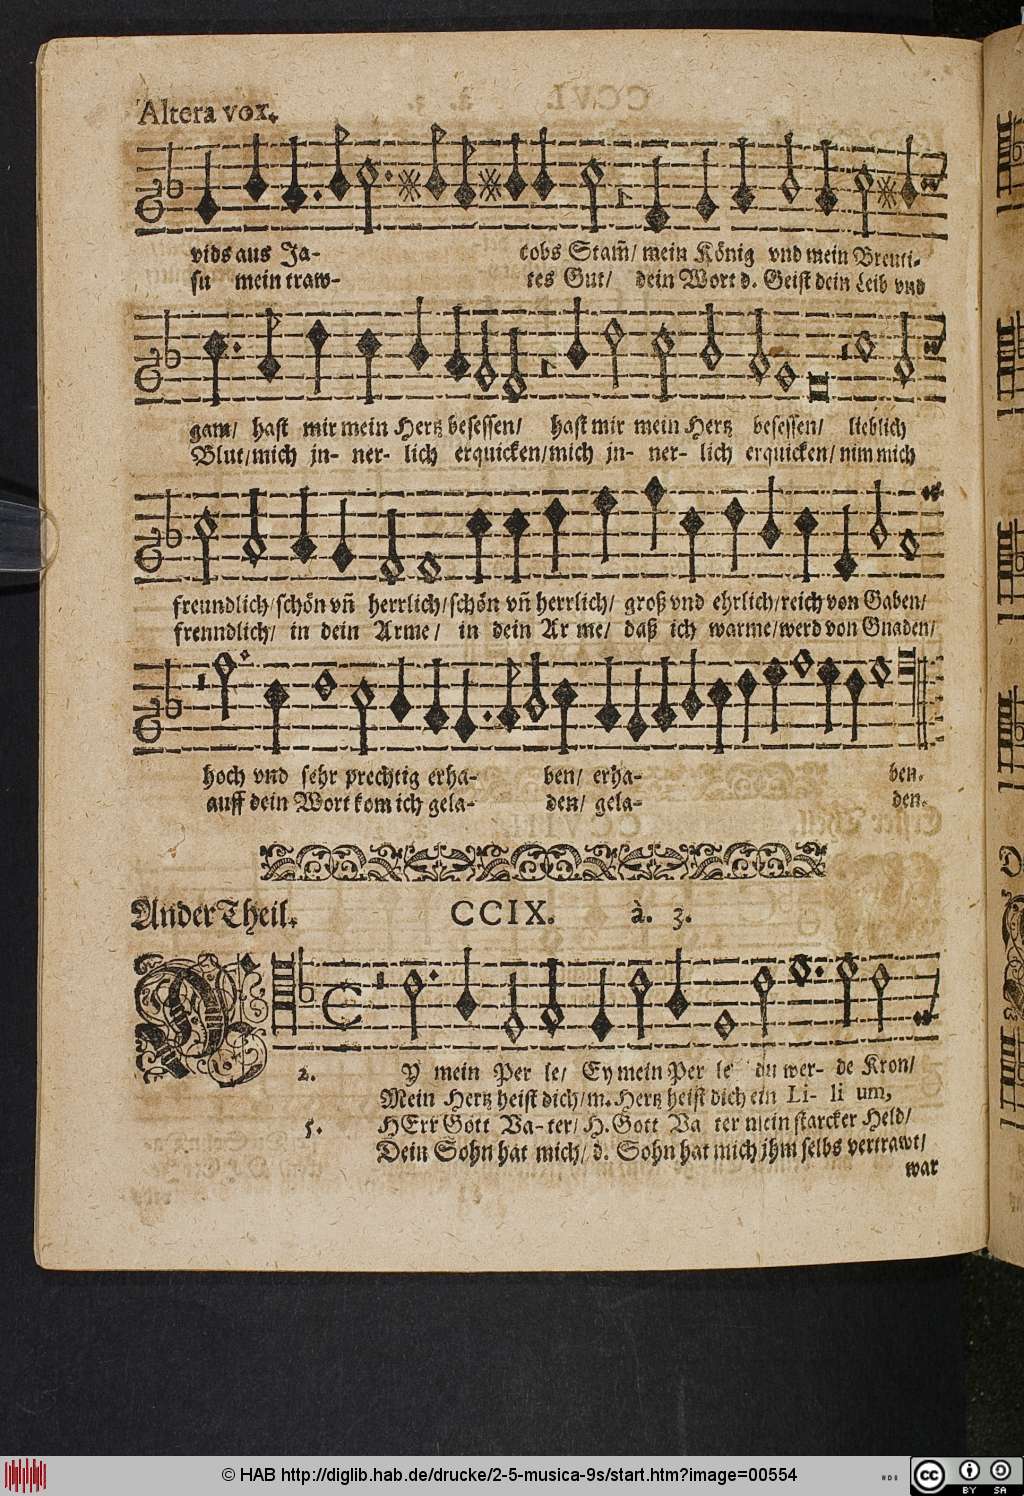 Altera vox.
vids aus Ja- cobs Stam̃/ mein König vnd mein Breuti-
su mein traw- tes Gut/ dein Wort d. Geist dein Leib vnd
gam/ hast mir mein Hertz besessen/ hast mir mein Hertz besessen/ lieblich
Blut/mich jn- ner- lich erquicken/mich jn- ner- lich erquicken/ nim mich
freundlich/schön vñ herrlich/schön vñ herrlich/ groß vnd ehrlich/reich von Gaben/
freundlich/ in dein Arme/ in dein Ar me/ daß ich warme/werd von Gnaden/
hoch vnd sehr prechtig erha- ben/ erha- ben.
auff dein Wort kom ich gela- den/ gela- den.
Ander Theil. CCIX. à. 3.
2. Y mein Per le/ Ey mein Per le du wer- de Kron/
Mein Hertz heist dich/m. Hertz heist dich ein Li- li um,
5. HErr Gott Va- ter/ H. Gott Va ter mein starcker Held/
Dein Sohn hat mich/ d. Sohn hat mich jhm selbs vertrawt/
war
© HAB http://diglib.hab.de/drucke/2-5-musica-9s/start.htm?image=00554
cc BY SA